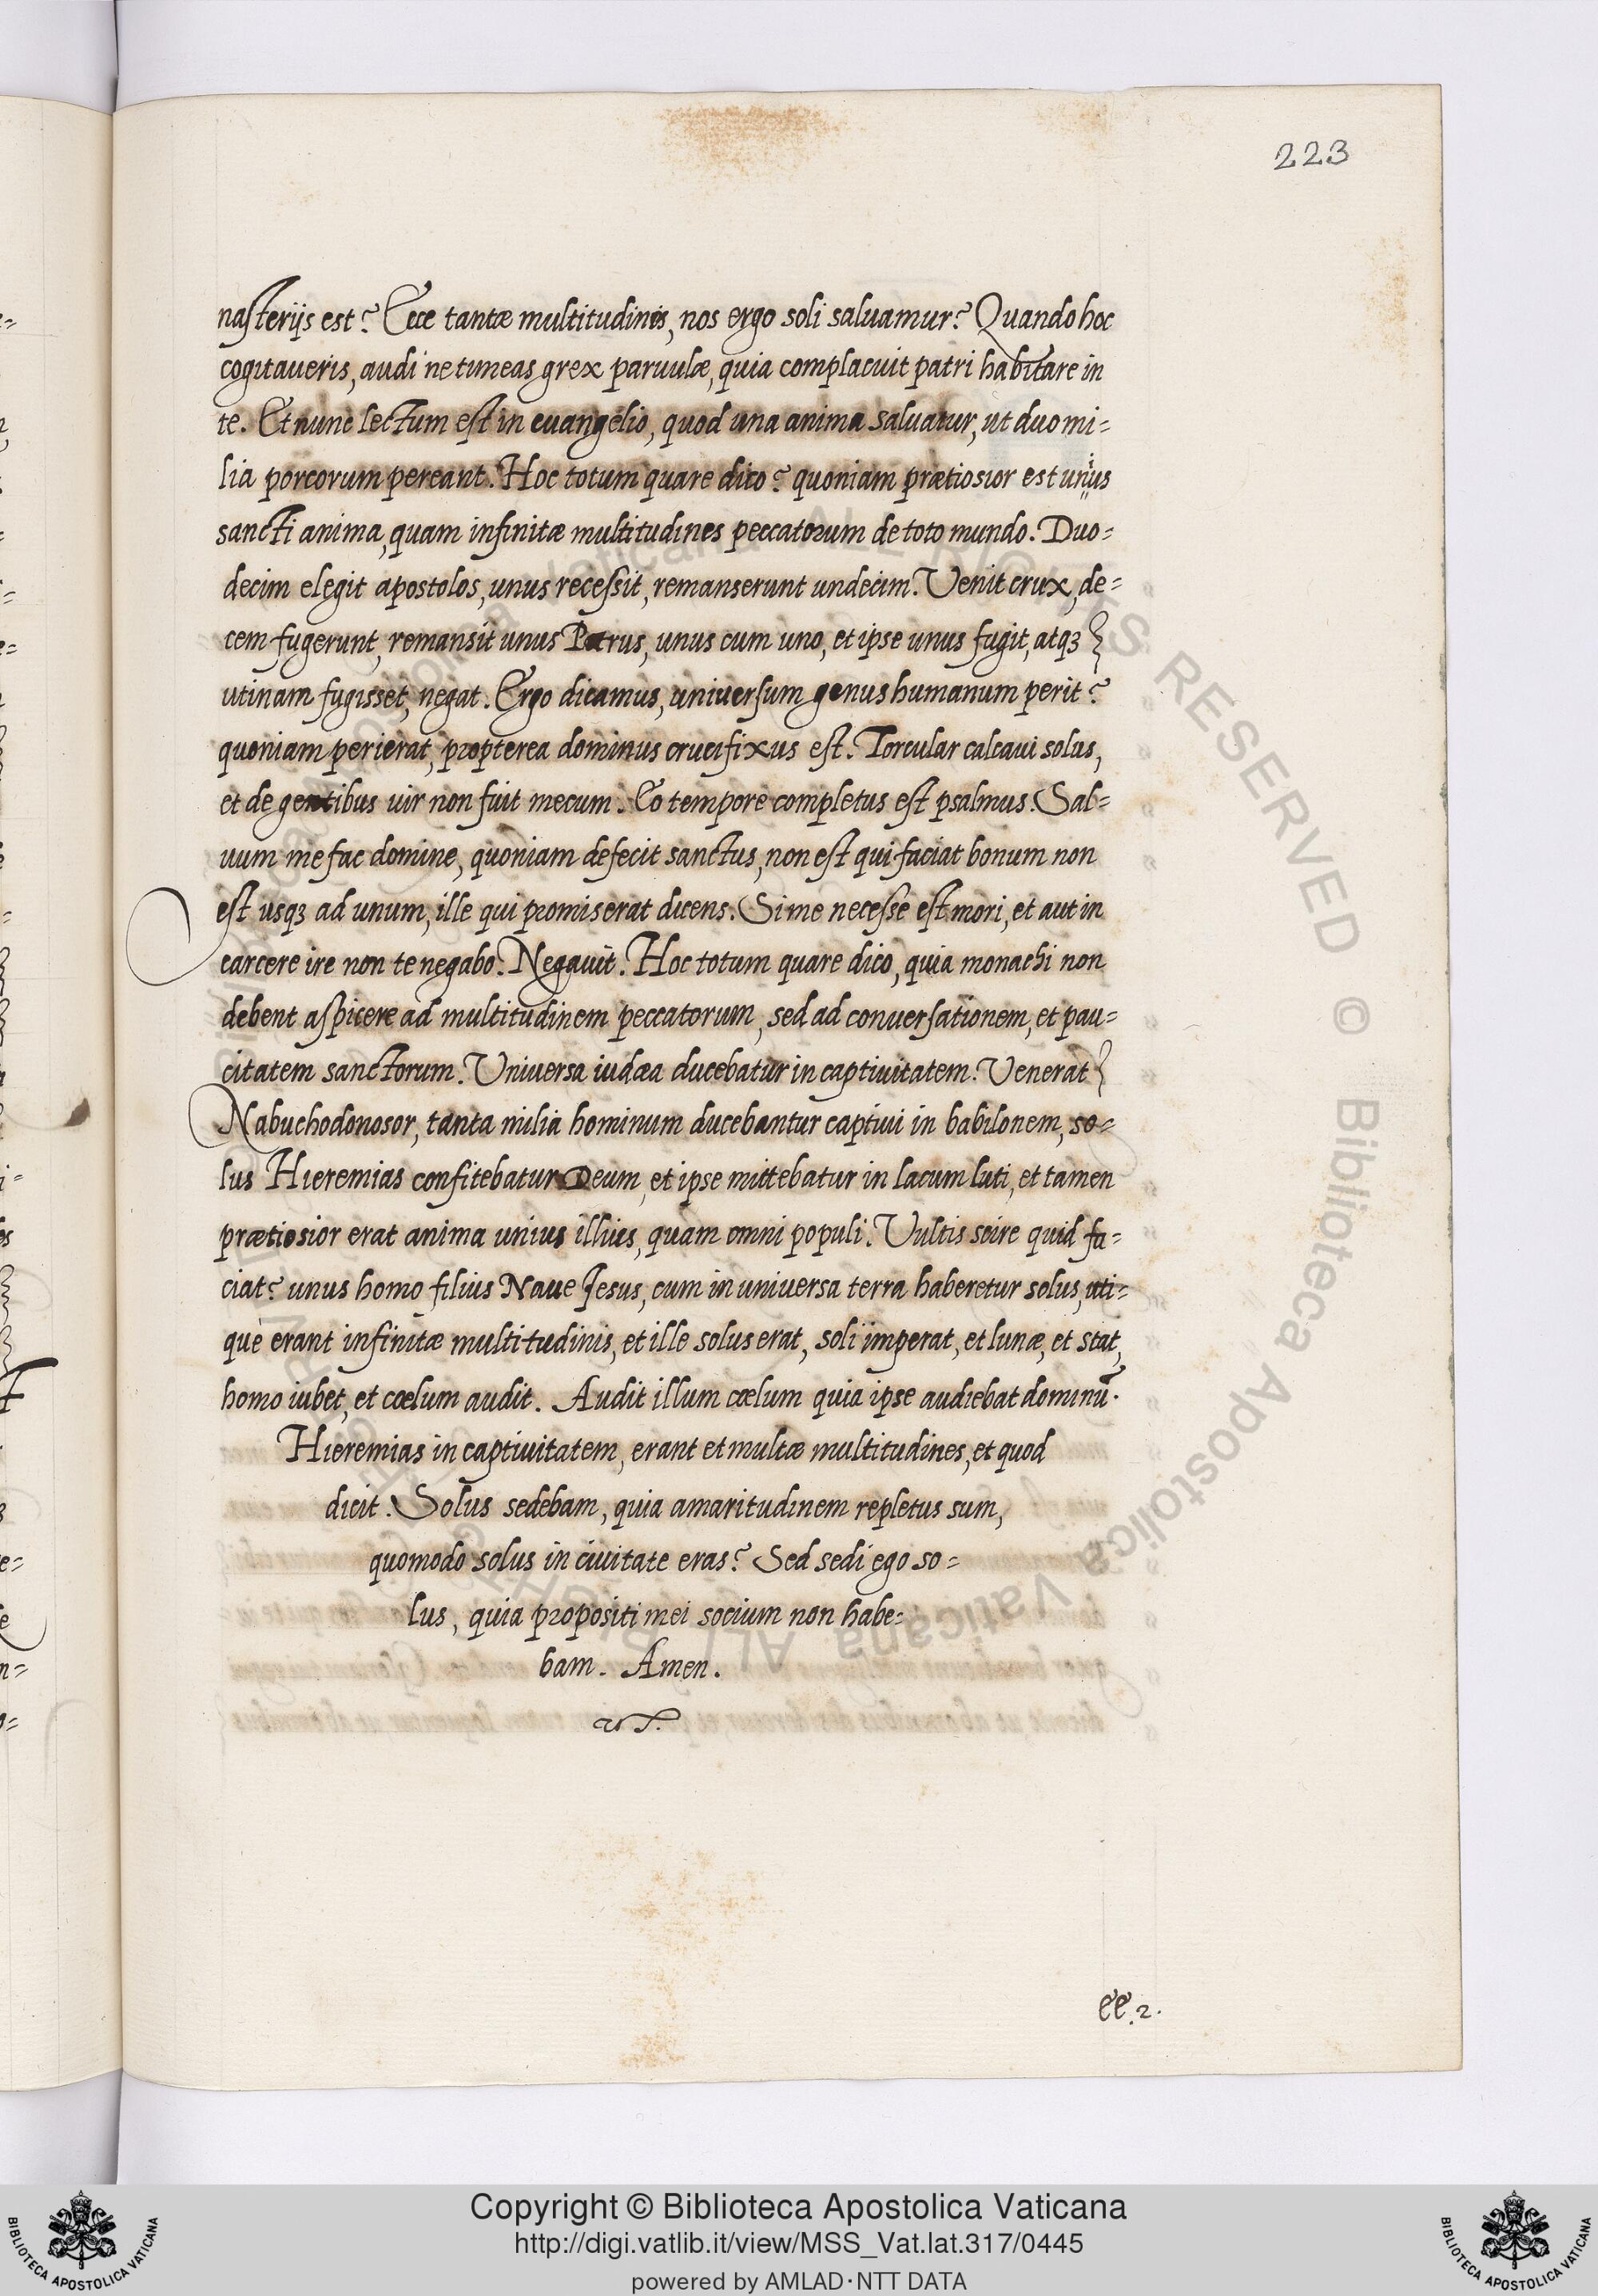 223
nasterijs est? Ecce tantæ multitudinis, nos ergo soli saluamur? Quando hoc
cogitaueris, audi ne timeas grex paruulæ, quia complacuit patri habitare in
te. Et nunc lectum est in euangelio, quod una anima saluatur, ut duo mi=
lia porcorum pereant. Hoc totum quare dico? quoniam prætiosior est unius
sancti anima, quam infinitæ multitudines peccatorum de toto mundo. Duo=
decim elegit apostolos, unus recessit, remanserunt undecim. Venit crux, de=
cem fugerunt, remansit unus Petrus, unus cum uno, et ipse unus fugit, atqȝ
utinam fugisset, negat. Ergo dicamus, uniuersum genus humanum perit?
quoniam perierat, propterea dominus crucifixus est. Torcular calcaui solus,
et de gentibus uir non fuit mecum. Eo tempore completus est psalmus. Sal=
uum me fac domine, quoniam defecit sanctus, non est qui faciat bonum non
est usqȝ ad unum, ille qui promiserat dicens. Si me necesse est mori, et aut in
carcere ire non te negabo. Negauit. Hoc totum quare dico, quia monachi non
debent aspicere ad multitudinem peccatorum, sed ad conuersationem, et pau=
citatem sanctorum. Vniuersa iudæa ducebatur in captiuitatem. Venerat
Nabuchodonosor, tanta milia hominum ducebantur captiui in babilonem, so=
lus Hieremias confitebatur Deum, et ipse mittebatur in lacum luti, et tamen
prætiosior erat anima unius illius, quam omni populi. Vultis scire quid fa=
ciat? unus homo filius Naue Jesus, cum in uniuersa terra haberetur solus, uti=
que erant infinitæ multitudinis, et ille solus erat, soli imperat, et lunæ, et stat,
homo iubet, et cœlum audit. Audit illum cœlum quia ipse audiebat dominū.
Hieremias in captiuitatem, erant et multæ multitudines, et quod
dicit. Solus sedebam, quia amaritudinem repletus sum,
quomodo solus in ciuitate eras? Sed sedi ego so=
lus, quia propositi mei socium non habe=
bam. Amen.
ee.2.
ALL RIGHTS RESERVED © Biblioteca Apostolica Vaticana
Copyright © Biblioteca Apostolica Vaticana
http://digi.vatlib.it/view/MSS_Vat.lat.317/0445
powered by AMLAD·NTT DATA
BIBLIOTECA APOSTOLICA VATICANA
BIBLIOTECA APOSTOLICA VATICANA